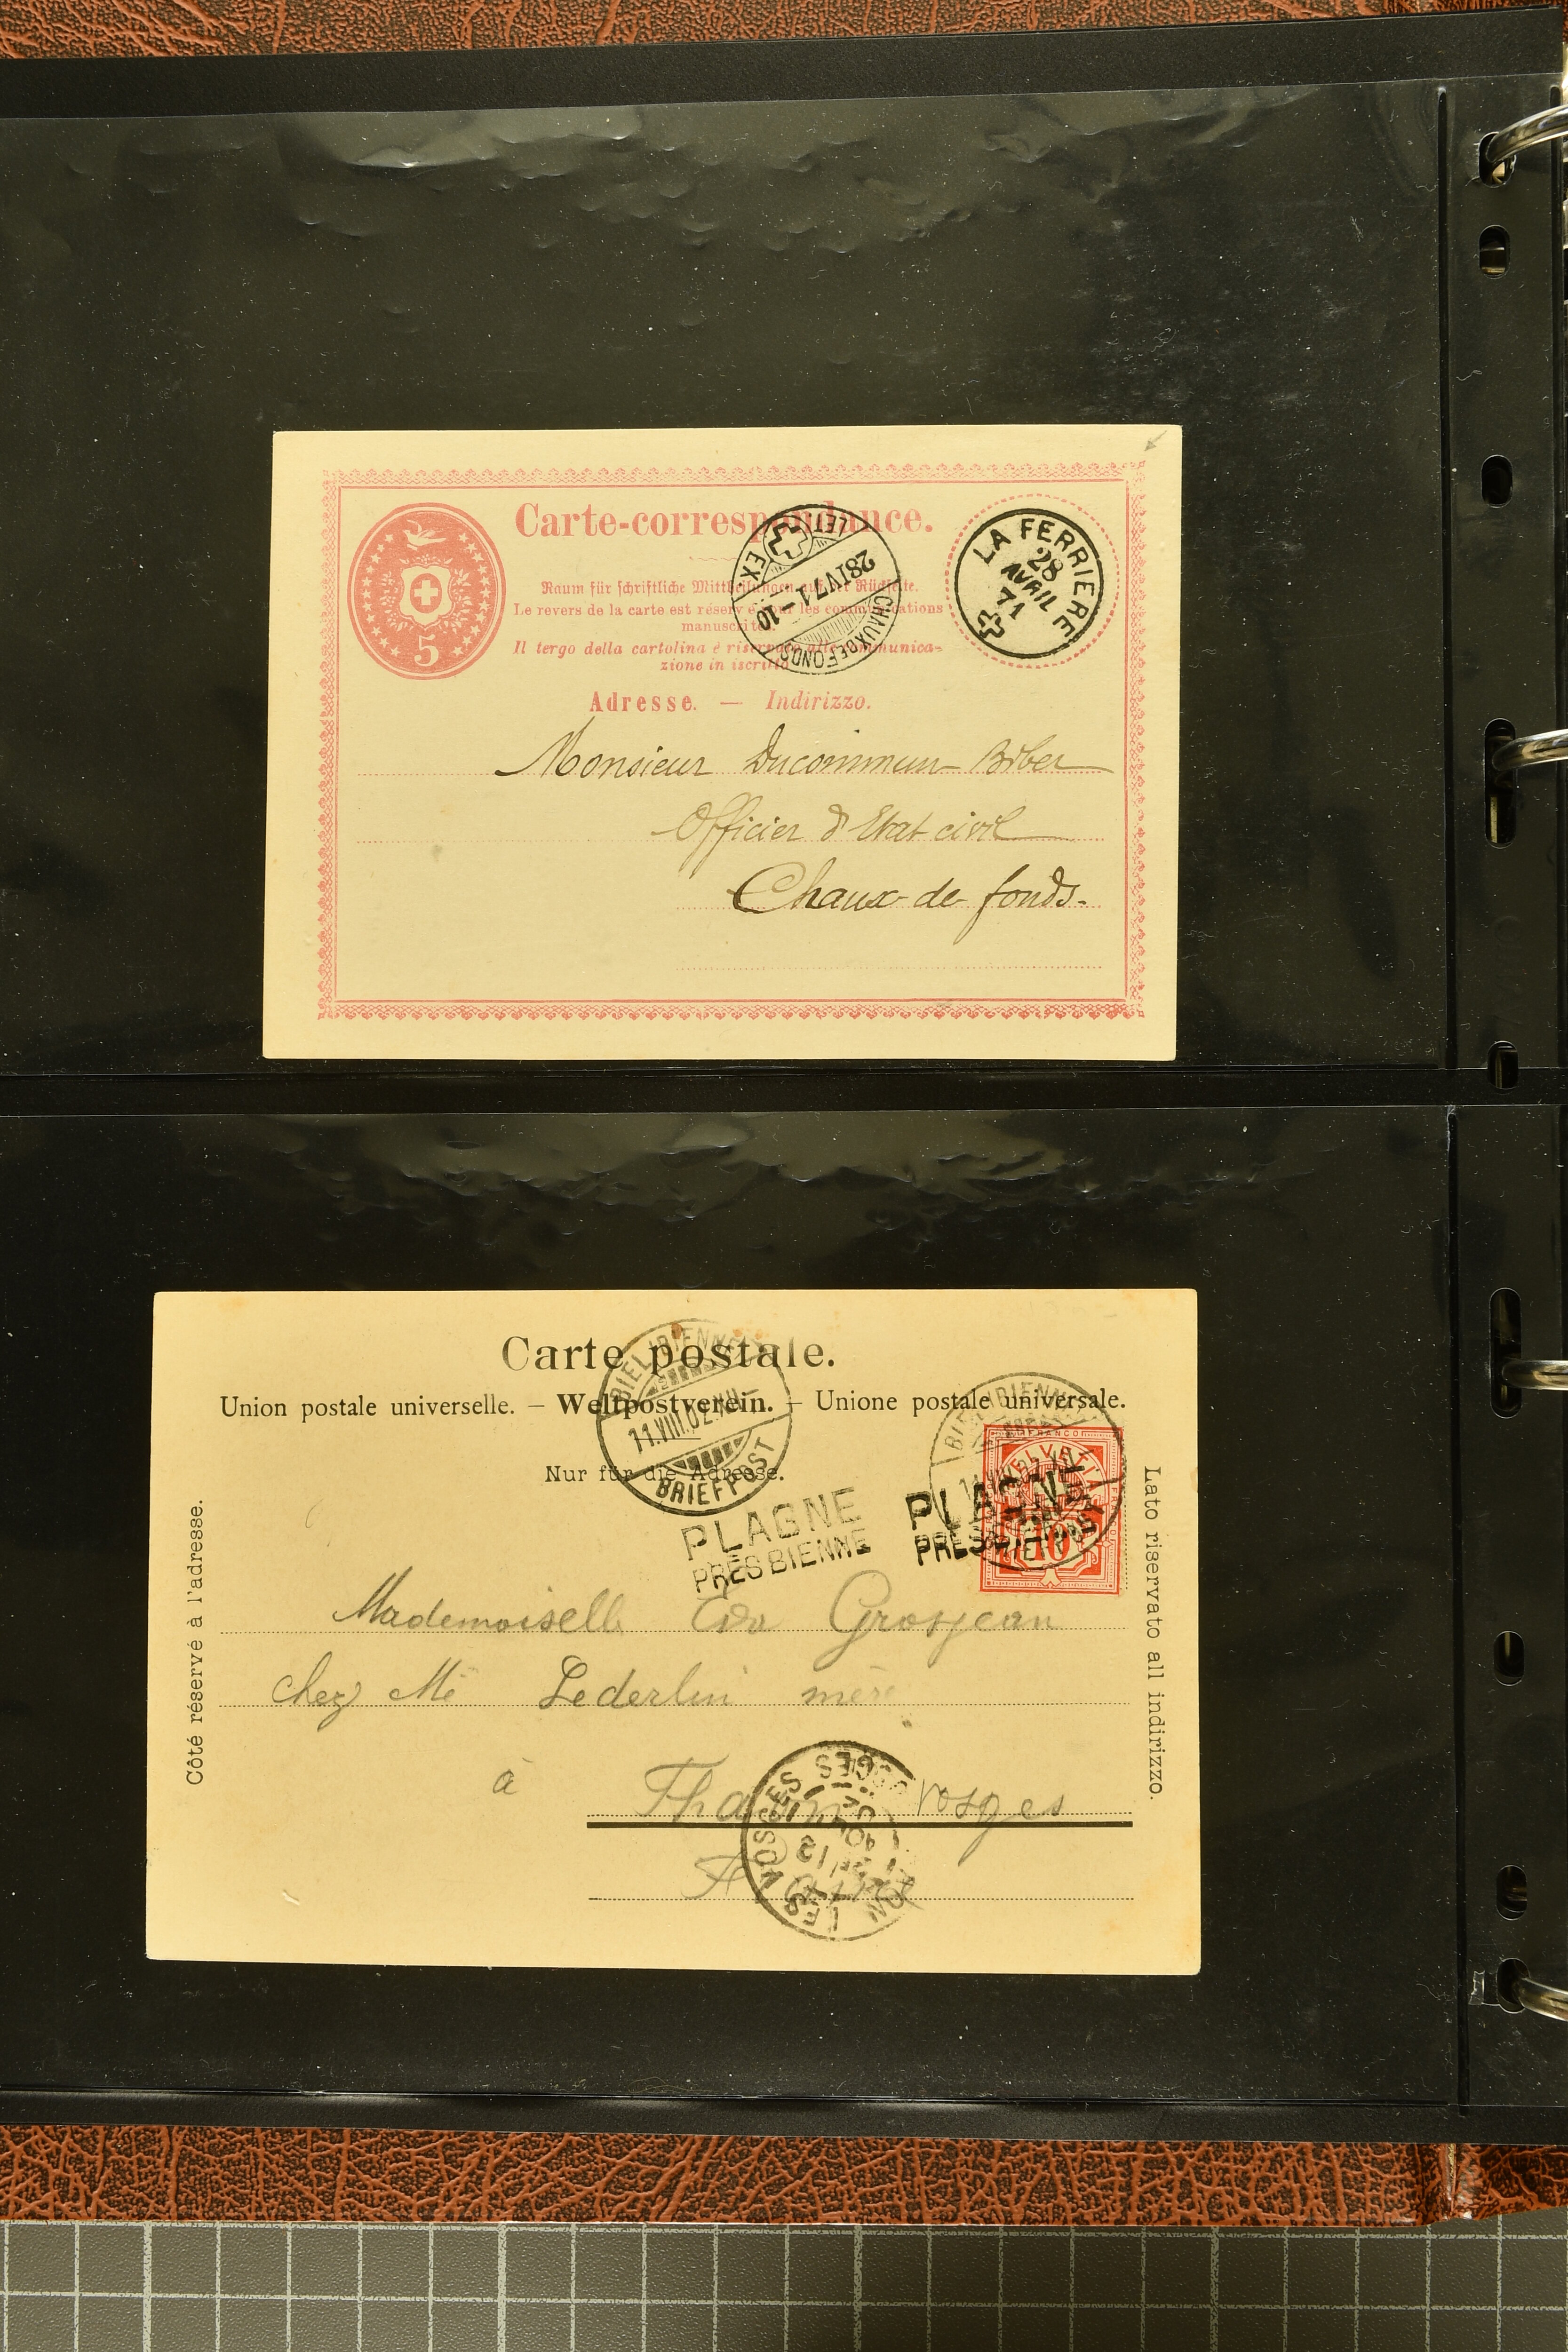 Carte-correspondance.
Raum für schriftliche Mittheilungen auf der Rückseite.
Le revers de la carte est réservé pour les communications
manuscrites.
Il tergo della cartolina è riservato alle communica-
zione in iscritto.
5
LA FERRIERE
28
AVRIL
71
CHAUXDEFONDS
LET. EX.
28 IV 71 - 10
Adresse. — Indirizzo.
Monsieur Ducommun Biber
Officier d'Etat civil
Chaux-de-fonds.
Carte postale.
Union postale universelle. – Weltpostverein. – Unione postale universale.
Nur für die Adresse.
BIEL (BIENNE)
11.VIII.02.
BRIEFPOST
FRANCO
HELVETIA
10
BIEL (BIENNE)
PLAGNE
PRÈS BIENNE
PLAGNE
PRÈS BIENNE
Côté réservé à l'adresse.
Lato riservato all indirizzo.
Mademoiselle Eva Grosjean
chez Me Lederlin mère
à Vosges
VOSGES
LES